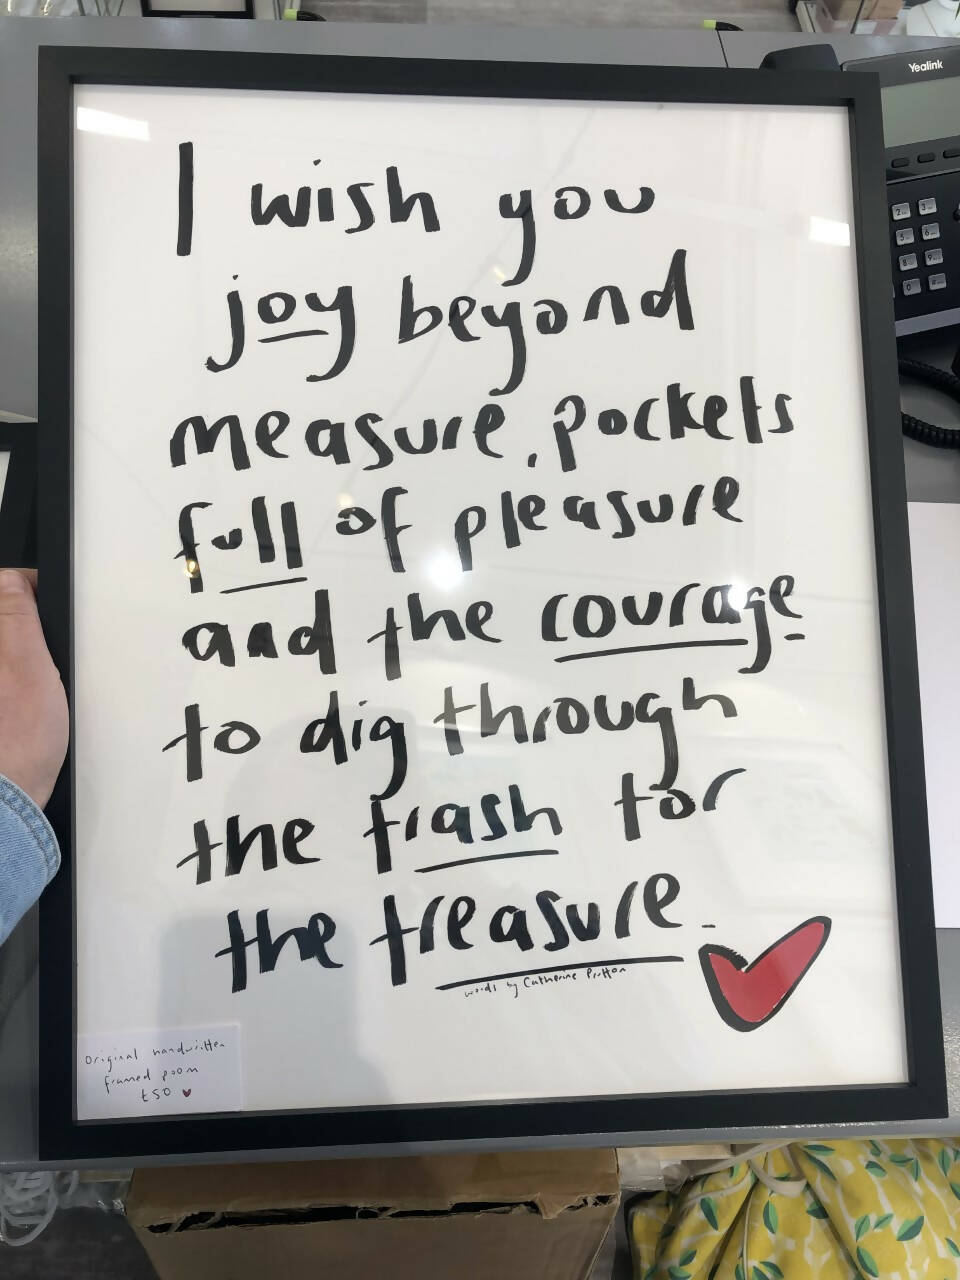 Yealink
I wish you
joy beyond
measure, pockets
full of pleasure
and the courage
to dig through
the trash for
the treasure.
words by Catherine Prutton
original handwritten
framed poem
£50
2
3
5
6
8
9
0
#